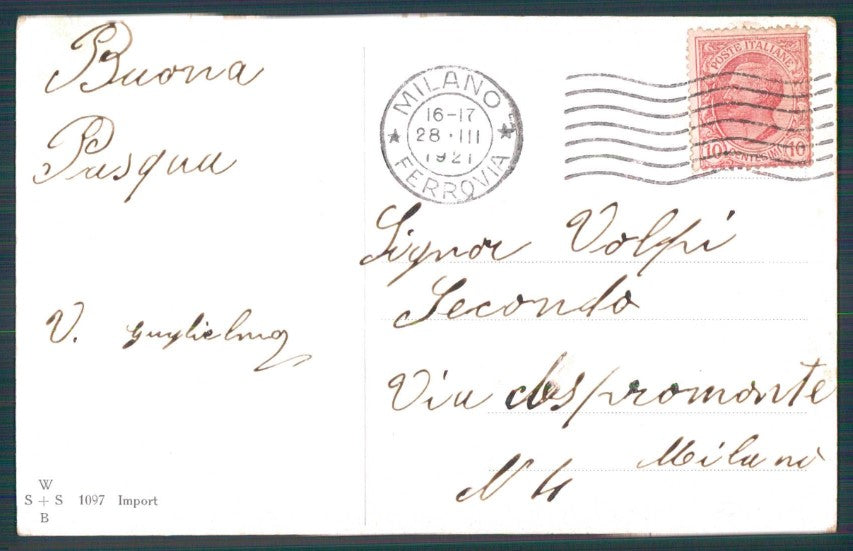 Buona
Pasqua
V. Guglielmo
W
S + S 1097 Import
B
MILANO
16-17
28·III
1921
FERROVIA
POSTE ITALIANE
10 CENTESIMI 10
Signor Volpi
Secondo
Via aspromonte
Milano
N 4